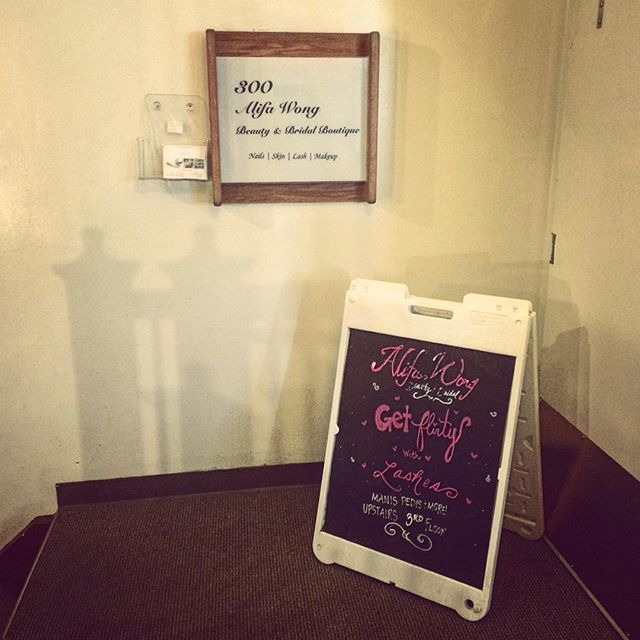 300
Alifa Wong
Beauty & Bridal Boutique
Nails | Skin | Lash | Makeup
Alifa Wong
Beauty & Bridal
Get flirty
with
Lashes
MANIS PEDIS & MORE!
UPSTAIRS 3RD FLOOR